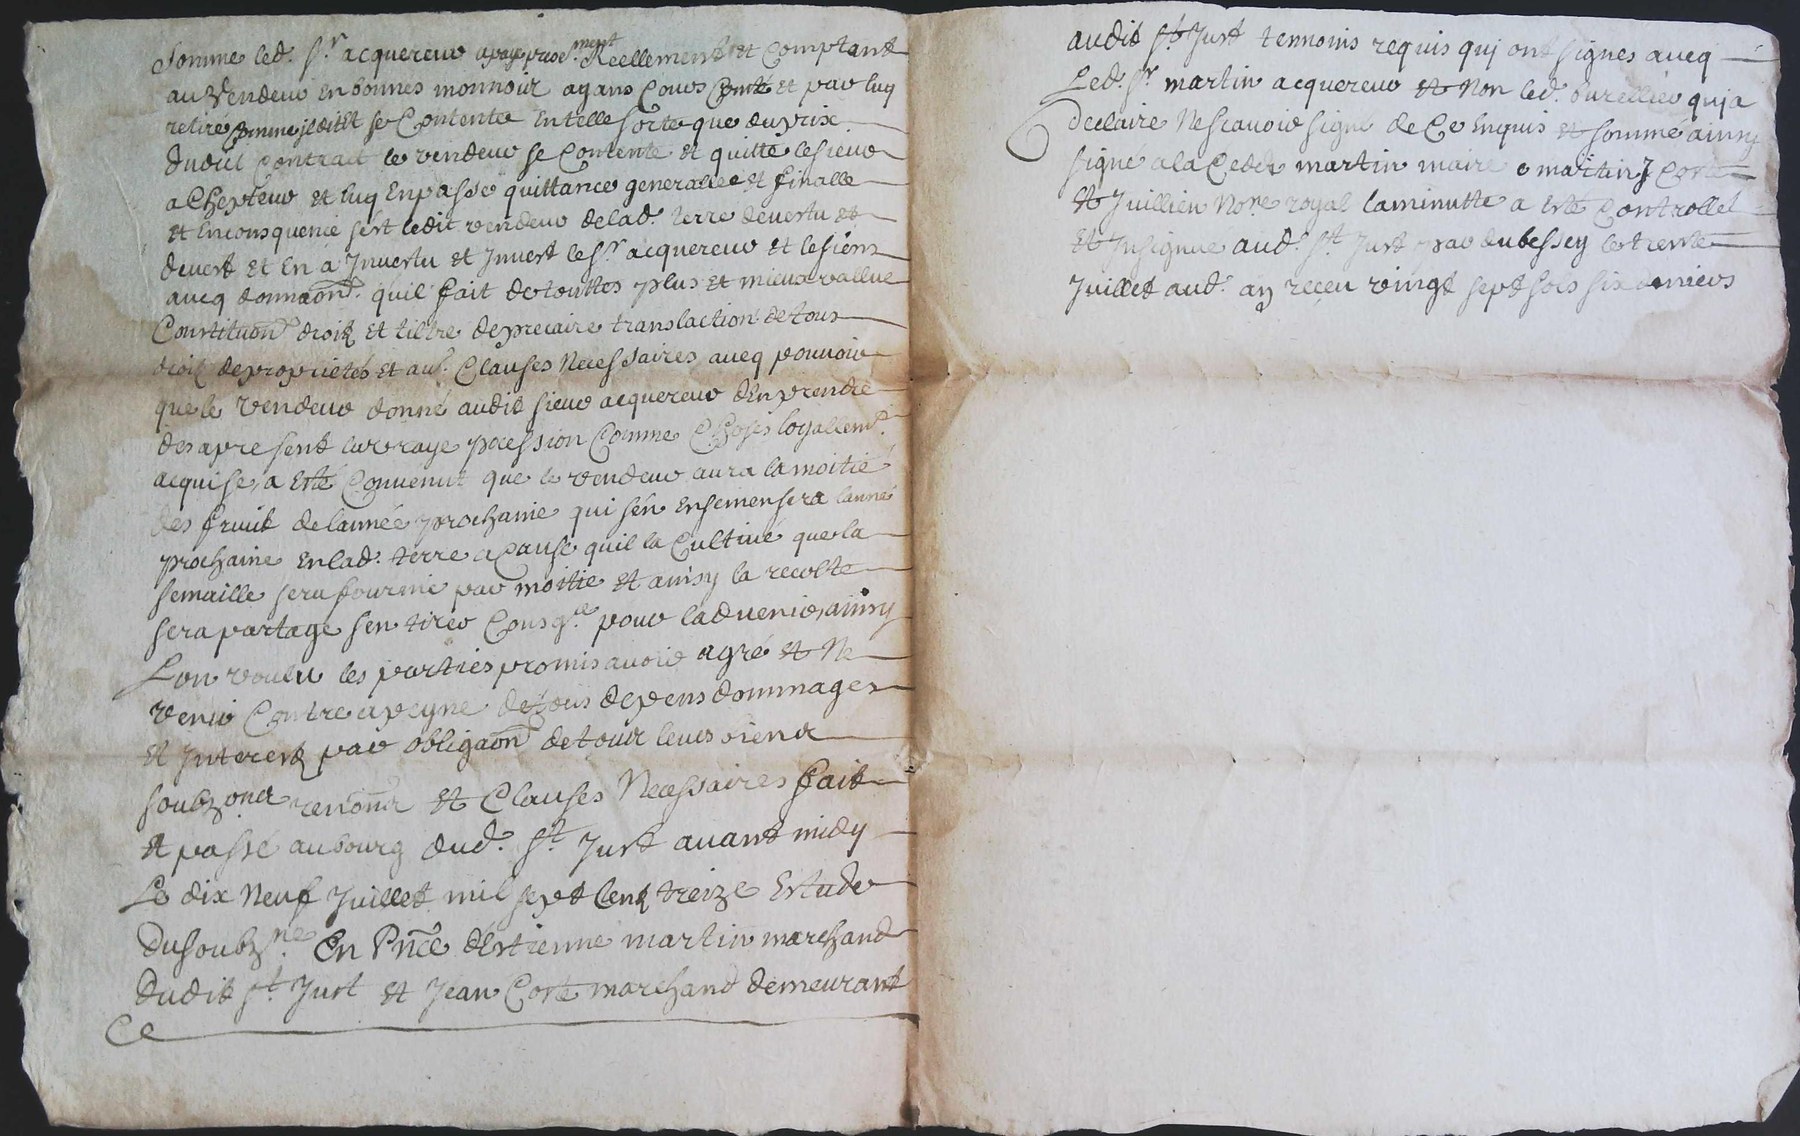 Somme led. Sr. acquereur a payé presentement Reellement et Comptant
au Vendeur en bonnes monnoie ayans Cours Compté et par luy
retiré Comme il dit Et se Contente En telle sorte que du prix
dudit Contract le vendeur se Contente et quitte le sieur
achepteur et luy En passe quittance generalle et finalle
et En consquence s'est ledit vendeur de lad. terre devestu et
devest et En a Jnvestu et Jnvest le Sr. acquereur et les siens
avecq donnaon. quil fait de touttes plus et mieux vallue
Constituon droit et tiltre de precaire translaction de tous
droit de proprietés et aus. Clauses Necessaires avecq pouvoir
que le vendeur donne audit sieur acquereur d'En prendre
des apresent la vraye pocession Comme Choses loyallemt.
acquise, a Esté Convenut que le vendeur aura la moitié
des fruit de lannée prochaine qui sen Ensemensera lanné
prochaine En lad. terre a Cause quil la Cultivé que la
semaille sera fournie par moitie Et ainsy la recolte
sera partage sen tirer Consqce pour ladvenir, ainsy
Lon voulu les parties promis avoir agré et Ne
venir Contre a peyne de tous depens dommages
et Jnterest par obligaon de tous leurs biens
soubzons renons et Clauses Necessaires fait
et passé au bourg dud. St. Just avant midy
Le dix Neuf Juillet mil sept Cent treize Estude
du soubzne. En Pnce d'Estienne martin marchand
dudit St. Just et Jean Coste marchand demeurant
Ce
audit St Just temmoins requis qui ont signés avecq
Led. Sr. martin acquereur et Non led. qui a
declaire Ne scavoir signé de Ce Enquis et sommé ainsy
signé a la Cede martin maire martin J Coste
et Juillien Nore royal la minutte a Esté Controllet
et Jnsignue aud. St. Just par dubessey le trente
Juillet aud. an reçeu vingt sept sols six deniers